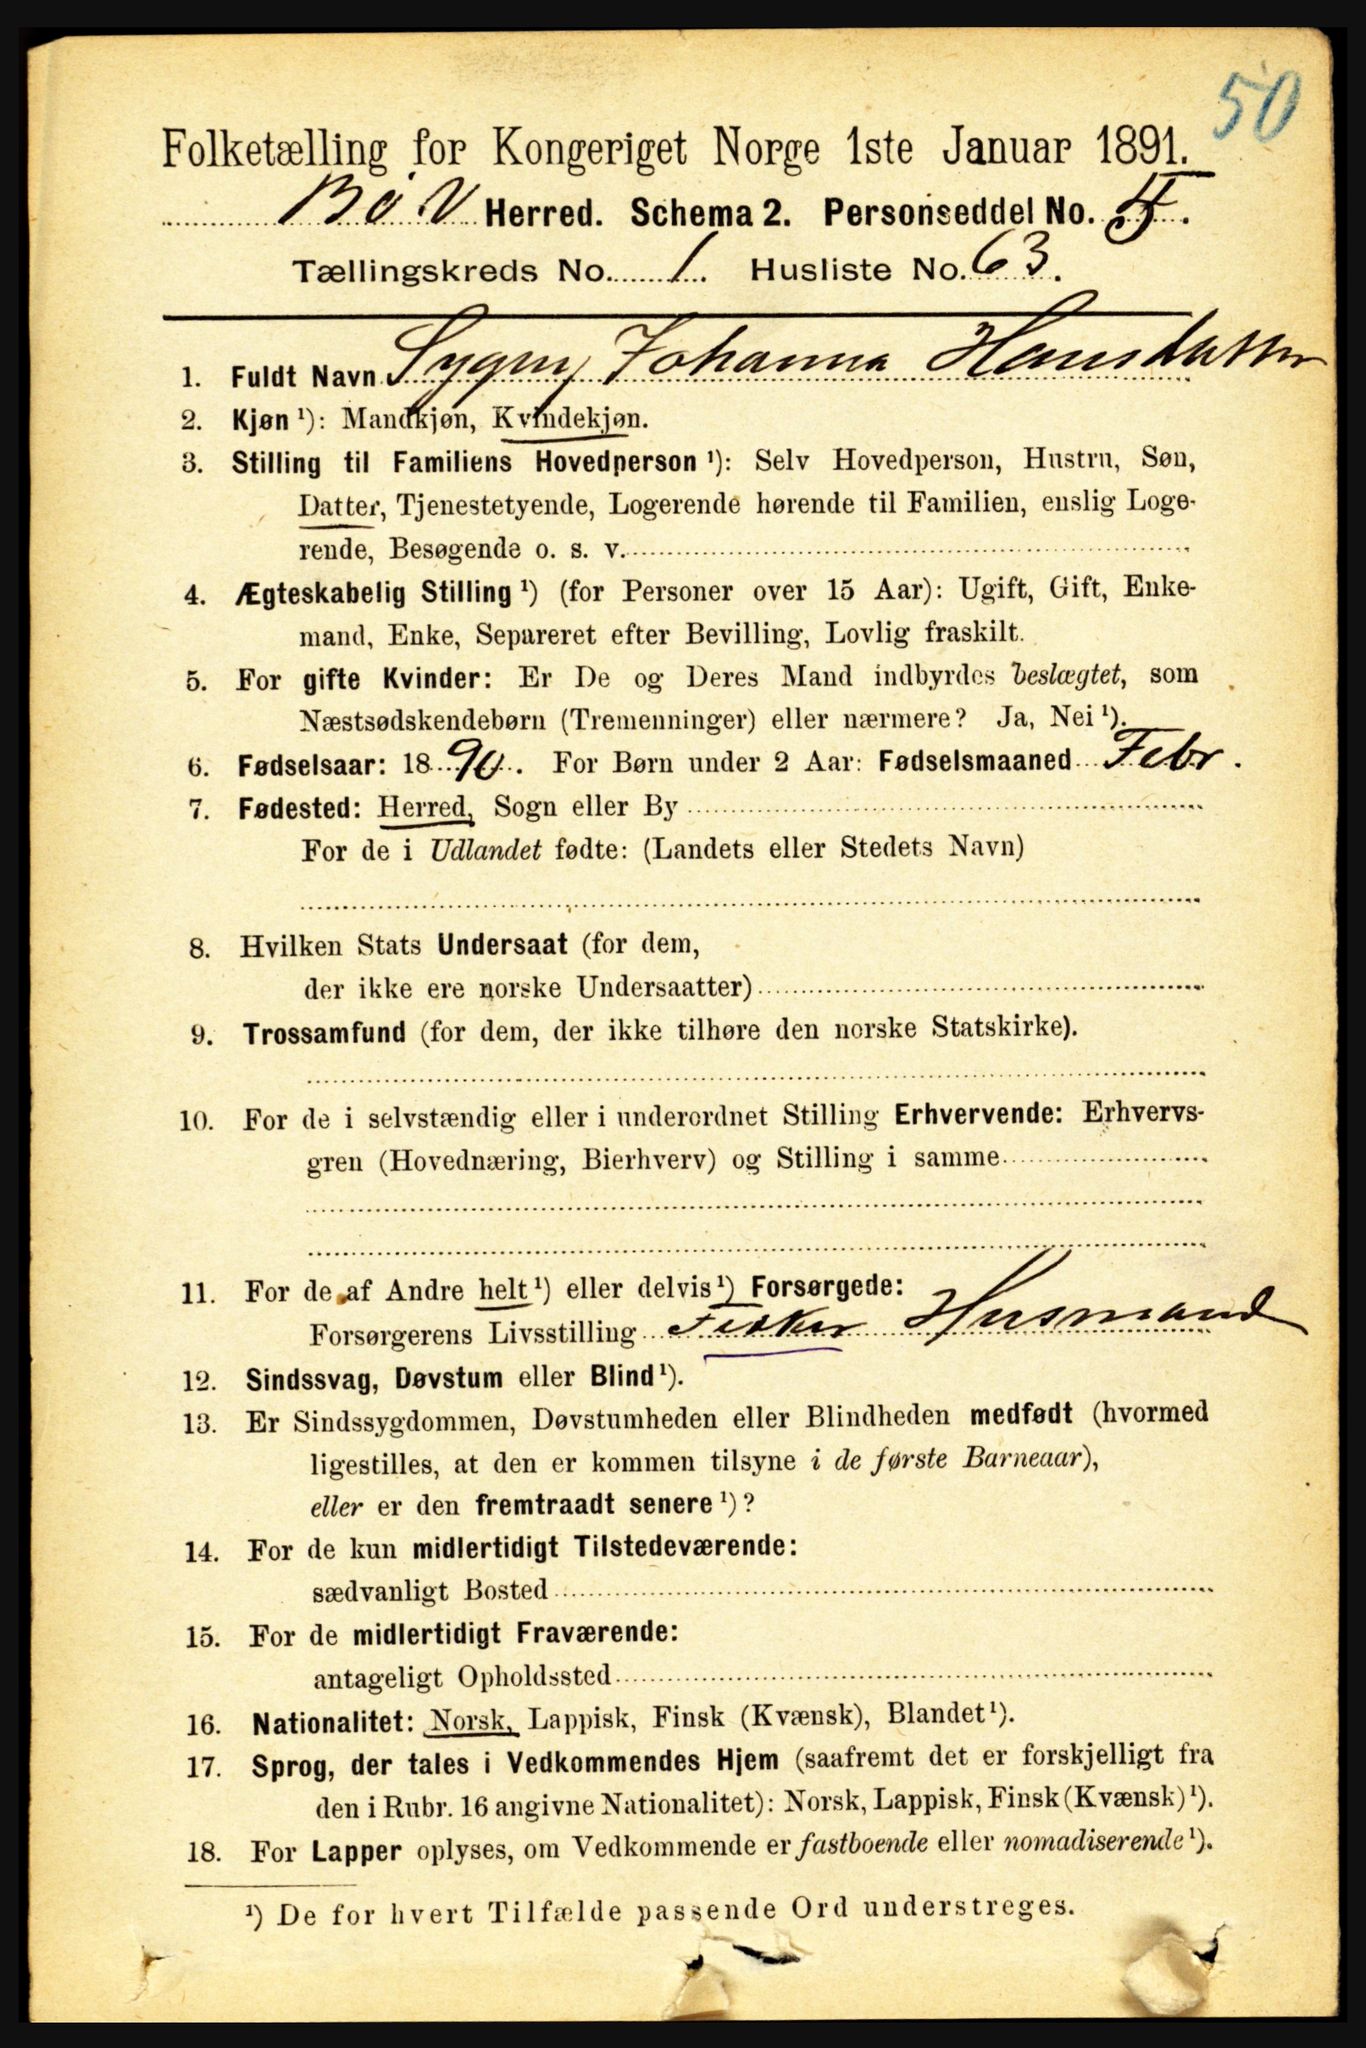 50
Folketælling for Kongeriget Norge 1ste Januar 1891.
Bø Herred. Schema 2. Personseddel No. 5.
Tællingskreds No. 1. Husliste No. 63.
1. Fuldt Navn Johanna Hansdatter
2. Kjøn ¹): Mandkjøn, Kvindekjøn.
3. Stilling til Familiens Hovedperson ¹): Selv Hovedperson, Hustru, Søn,
Datter, Tjenestetyende, Logerende hørende til Familien, enslig Loge-
rende, Besøgende o. s. v.
4. Ægteskabelig Stilling ¹) (for Personer over 15 Aar): Ugift, Gift, Enke-
mand, Enke, Separeret efter Bevilling, Lovlig fraskilt.
5. For gifte Kvinder: Er De og Deres Mand indbyrdes beslægtet, som
Næstsødskendebørn (Tremenninger) eller nærmere? Ja, Nei ¹).
6. Fødselsaar: 1890. For Børn under 2 Aar: Fødselsmaaned Febr.
7. Fødested: Herred, Sogn eller By
For de i Udlandet fødte: (Landets eller Stedets Navn)
8. Hvilken Stats Undersaat (for dem,
der ikke ere norske Undersaatter)
9. Trossamfund (for dem, der ikke tilhøre den norske Statskirke).
10. For de i selvstændig eller i underordnet Stilling Erhvervende: Erhvervs-
gren (Hovednæring, Bierhverv) og Stilling i samme
11. For de af Andre helt ¹) eller delvis ¹) Forsørgede:
Forsørgerens Livsstilling Fisker Husmand
12. Sindssvag, Døvstum eller Blind ¹).
13. Er Sindssygdommen, Døvstumheden eller Blindheden medfødt (hvormed
ligestilles, at den er kommen tilsyne i de første Barneaar),
eller er den fremtraadt senere ¹)?
14. For de kun midlertidigt Tilstedeværende:
sædvanligt Bosted
15. For de midlertidigt Fraværende:
antageligt Opholdssted
16. Nationalitet: Norsk, Lappisk, Finsk (Kvænsk), Blandet ¹).
17. Sprog, der tales i Vedkommendes Hjem (saafremt det er forskjelligt fra
den i Rubr. 16 angivne Nationalitet): Norsk, Lappisk, Finsk (Kvænsk) ¹).
18. For Lapper oplyses, om Vedkommende er fastboende eller nomadiserende ¹).
¹) De for hvert Tilfælde passende Ord understreges.